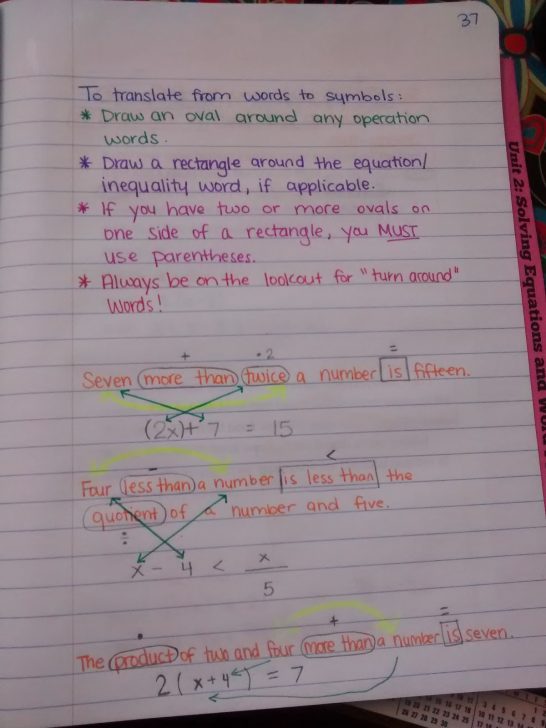 37
To translate from words to symbols:
* Draw an oval around any operation
words.
* Draw a rectangle around the equation/
inequality word, if applicable.
* If you have two or more ovals on
one side of a rectangle, you MUST
use parentheses.
* Always be on the lookout for "turn around"
words!
+ · 2 =
Seven more than twice a number is fifteen.
(2x) + 7 = 15
− <
Four less than a number is less than the
quotient of a number and five.
÷
x − 4 < x
5
• + =
The product of two and four more than a number is seven.
2 (x + 4) = 7
Unit 2: Solving Equations and